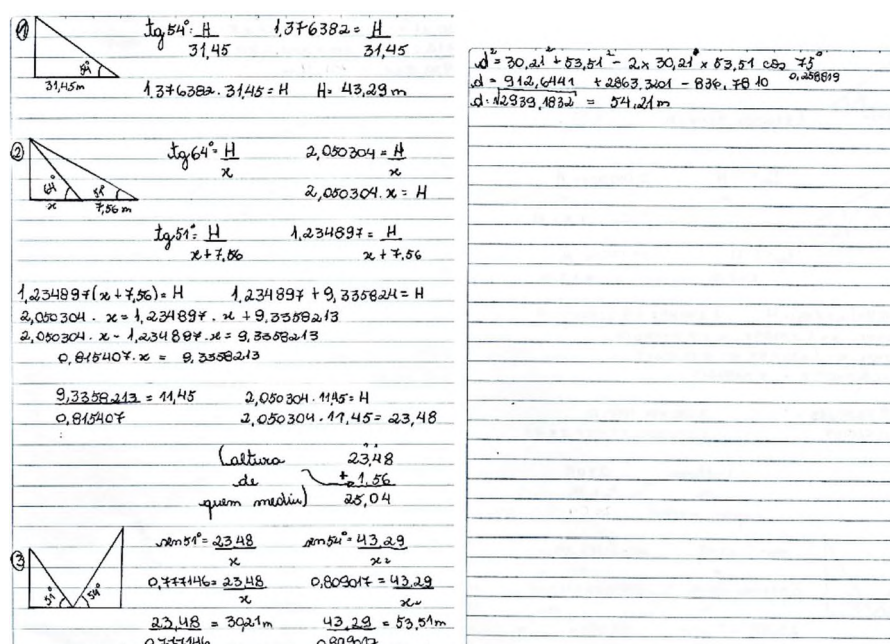 1
tg 54° = H/31,45    1,376382 = H/31,45
54°
31,45m
1,376382 . 31,45 = H    H = 43,29 m
2
tg 64° = H/x    2,050304 = H/x
64°    51°
x    7,56 m
2,050304 . x = H
tg 51° = H/x + 7,56    1,234897 = H/x + 7,56
1,234897 (x + 7,56) = H    1,234897 + 9,335824 = H
2,050304 . x = 1,234897 . x + 9,3358213
2,050304 . x - 1,234897 . x = 9,3358213
0,815407 . x = 9,3358213
9,3358213/0,815407 = 11,45    2,050304 . 11,45 = H
2,050304 . 11,45 = 23,48
(altura    23,48
de    + 1,56
quem mediu)    25,04
3
sen 51° = 23,48/x    sen 54° = 43,29/x₂
51°    54°
0,777146 = 23,48/x    0,809017 = 43,29/x₂
23,48/0,777146 = 30,21m    43,29/0,809017 = 53,51m
d² = 30,21² + 53,51² - 2 x 30,21 x 53,51 cos 75°
0,258819
d = 912,6441 + 2863,3201 - 836,7810
d = √2939,1832 = 54,21m